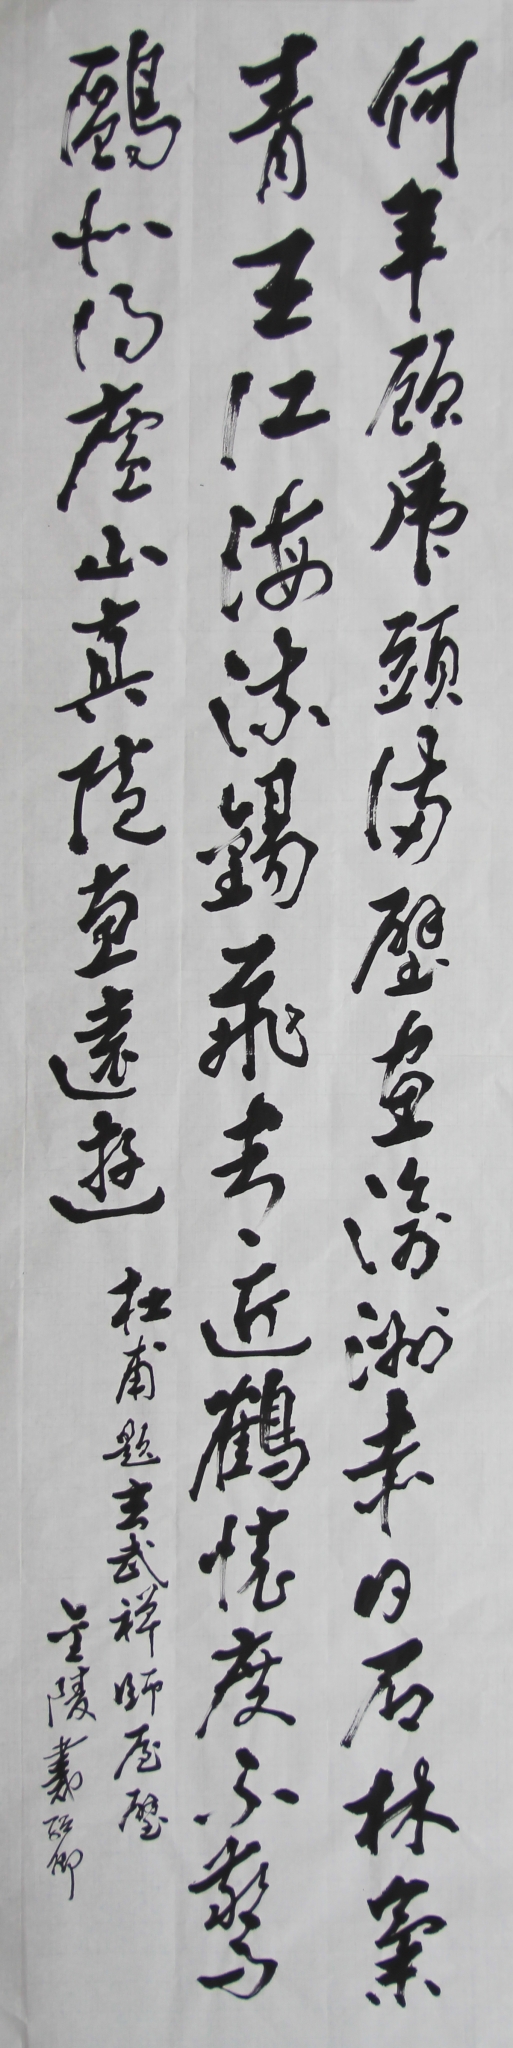 何年顧虎頭滿壁畫滄洲赤日石林氣
青王江海流錫飛常近鶴懷度不驚
鷗似得廬山真隨惠遠遊
杜甫題玄武禪師屋壁
金陵戴卿